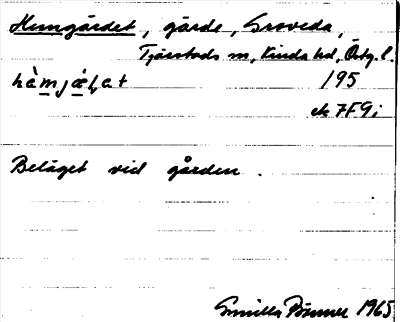 Hemgärdet, gärde, Groveda,
Tjärstads sn, Kinda hd, Östg. l.
hèmjæḷat 195
ek 7F9i
Beläget vid gården.
Gunilla 1965